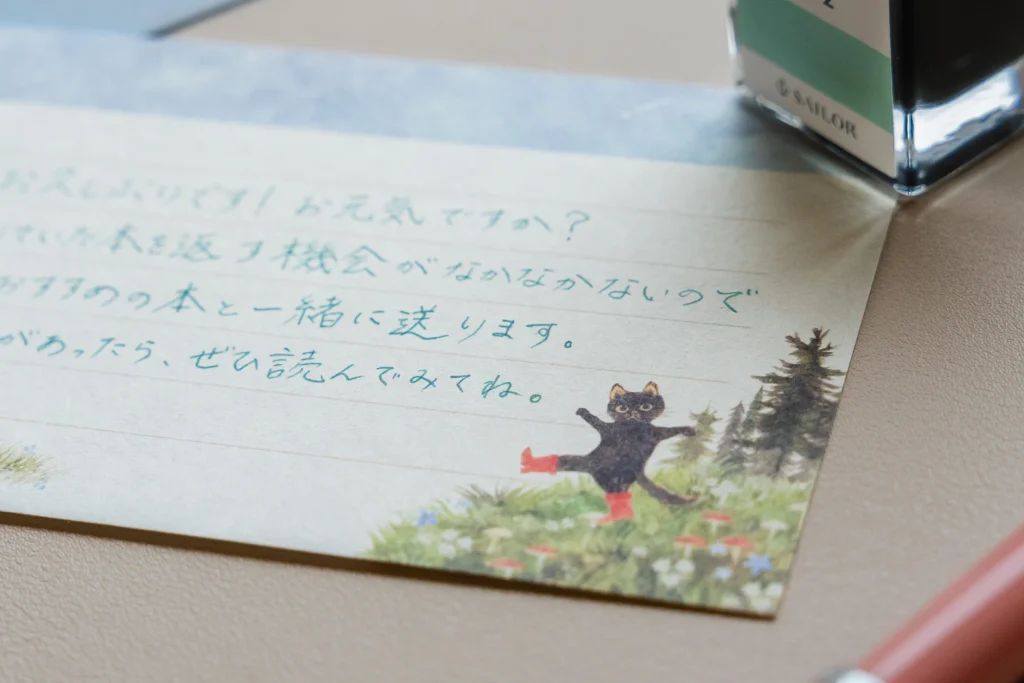 お久しぶりです！お元気ですか？
ていた本を返す機会がなかなかないので
おすすめの本と一緒に送ります。
があったら、ぜひ読んでみてね。
2
SAILOR